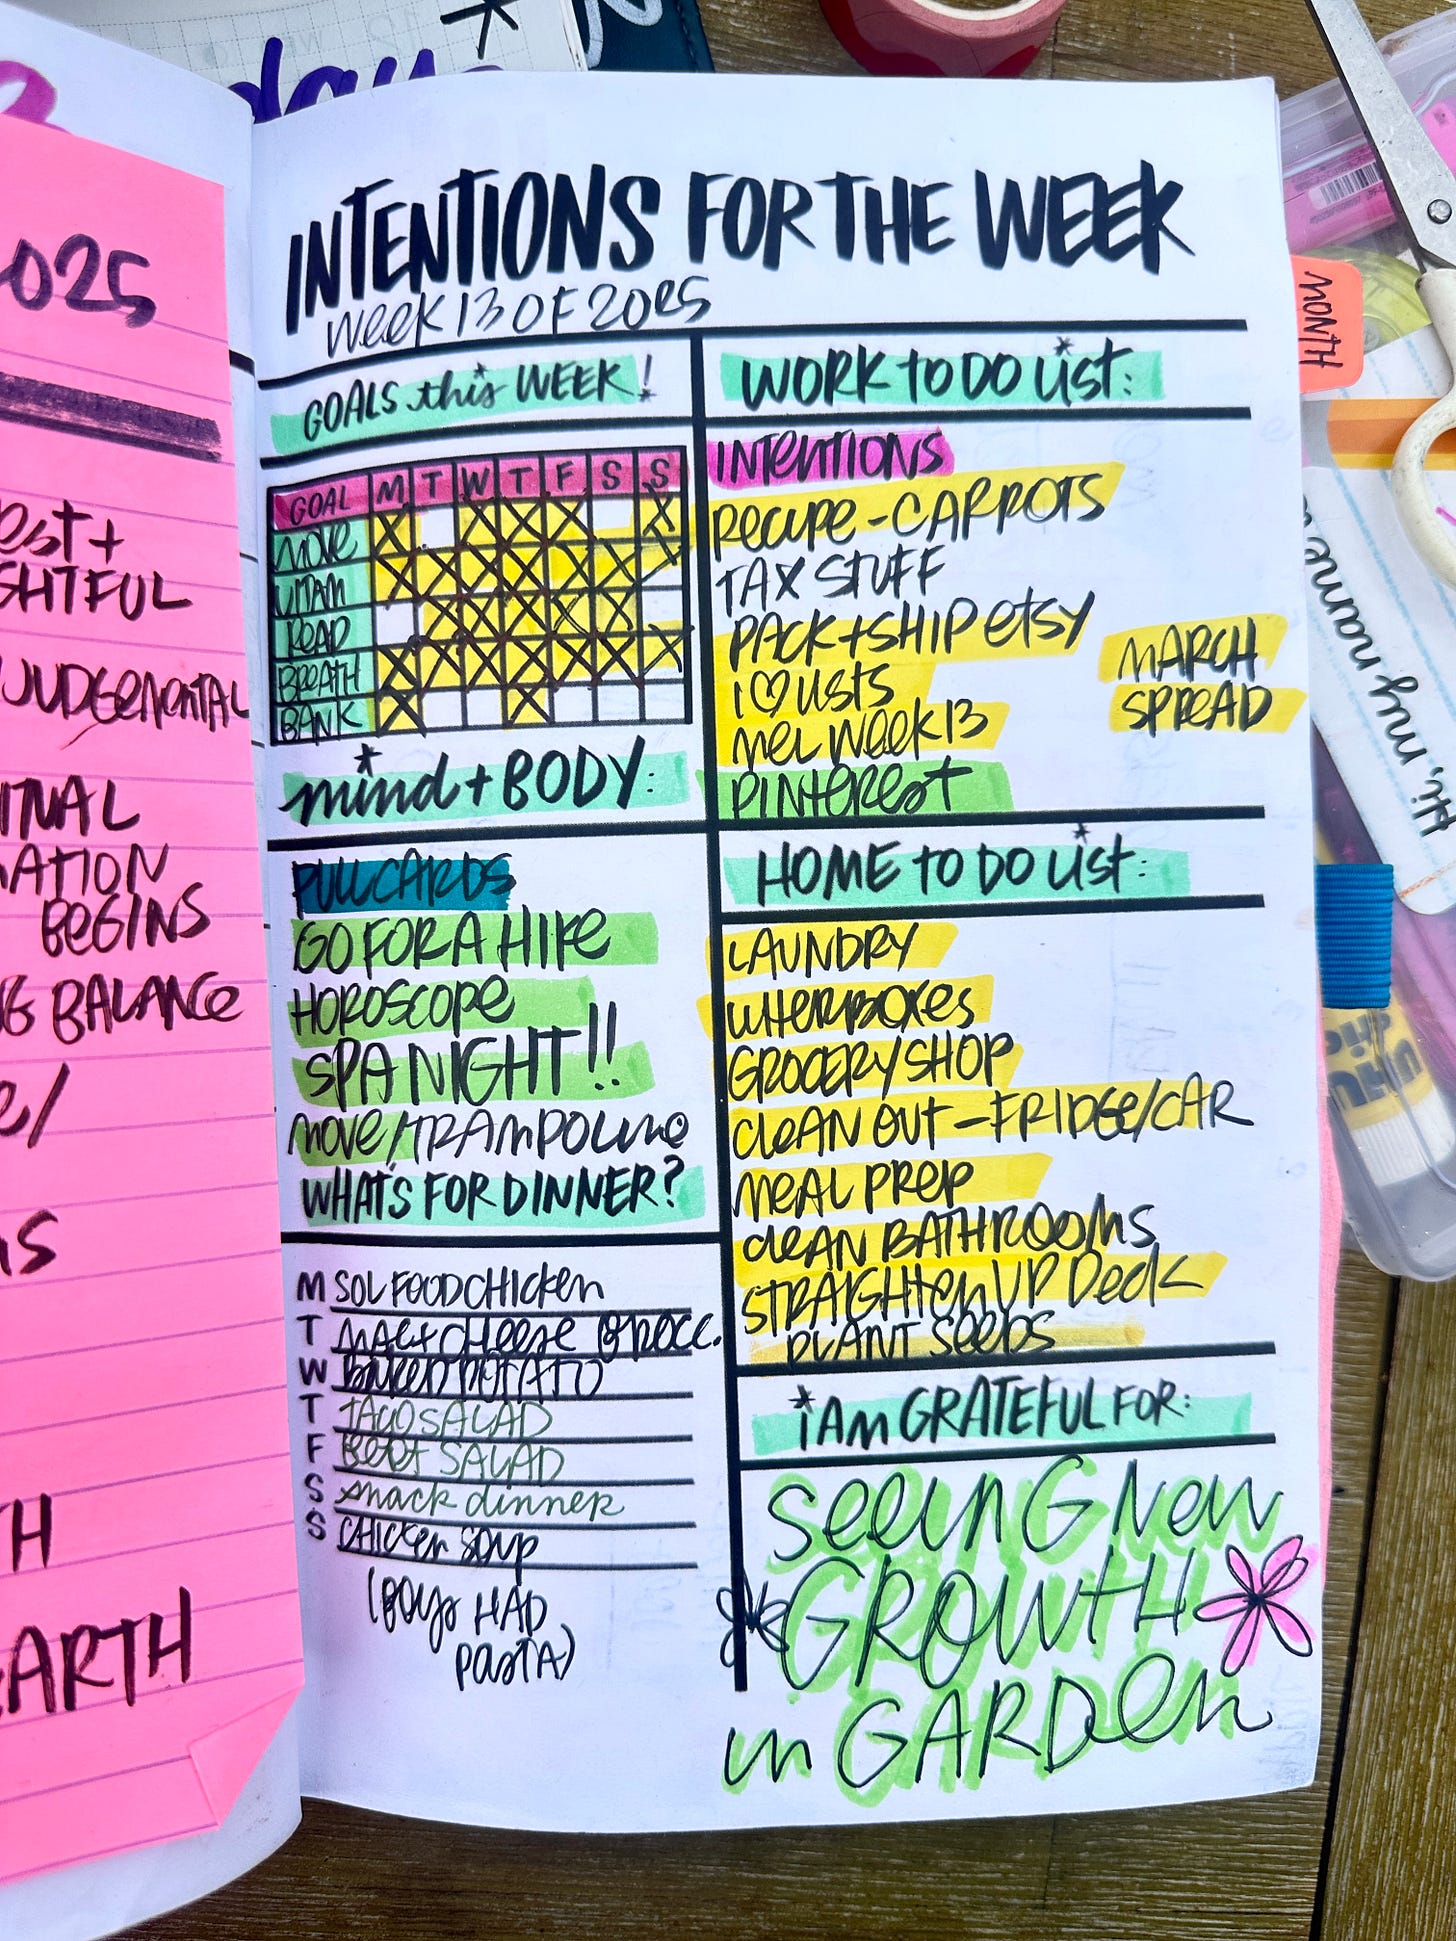 day
2025
est +
GHTFUL
JUDGEMENTAL
BEGINS
BALANCE
EARTH
INTENTIONS FOR THE WEEK
WEEK 13 OF 2025
GOALS this WEEK!
GOAL M T W T F S S
MOVE
VITAM
READ
BREATH
BANK
mind + BODY:
PULL CARDS
GO FOR A HIKE
HOROSCOPE
SPA NIGHT!!
MOVE/TRAMPOLINE
WHAT'S FOR DINNER?
M SOL FOOD CHICKEN
T MAC + CHEESE BROCC.
W BAKED POTATO
T TACO SALAD
F BEET SALAD
S snack dinner
S CHICKEN SOUP
(BOYS HAD
PASTA)
WORK TO DO LIST:
INTENTIONS
RECIPE - CARROTS
TAX STUFF
PACK + SHIP ETSY
I ♡ LISTS
MEL WEEK 13
PINTEREST
MARCH
SPREAD
HOME TO DO LIST:
LAUNDRY
LITTERBOXES
GROCERY SHOP
CLEAN OUT - FRIDGE/CAR
MEAL PREP
CLEAN BATHROOMS
STRAIGHTEN UP DECK
PLANT SEEDS
I AM GRATEFUL FOR:
SEEING NEW
GROWTH
IN GARDEN
MONTH
Hi, my name
UHU